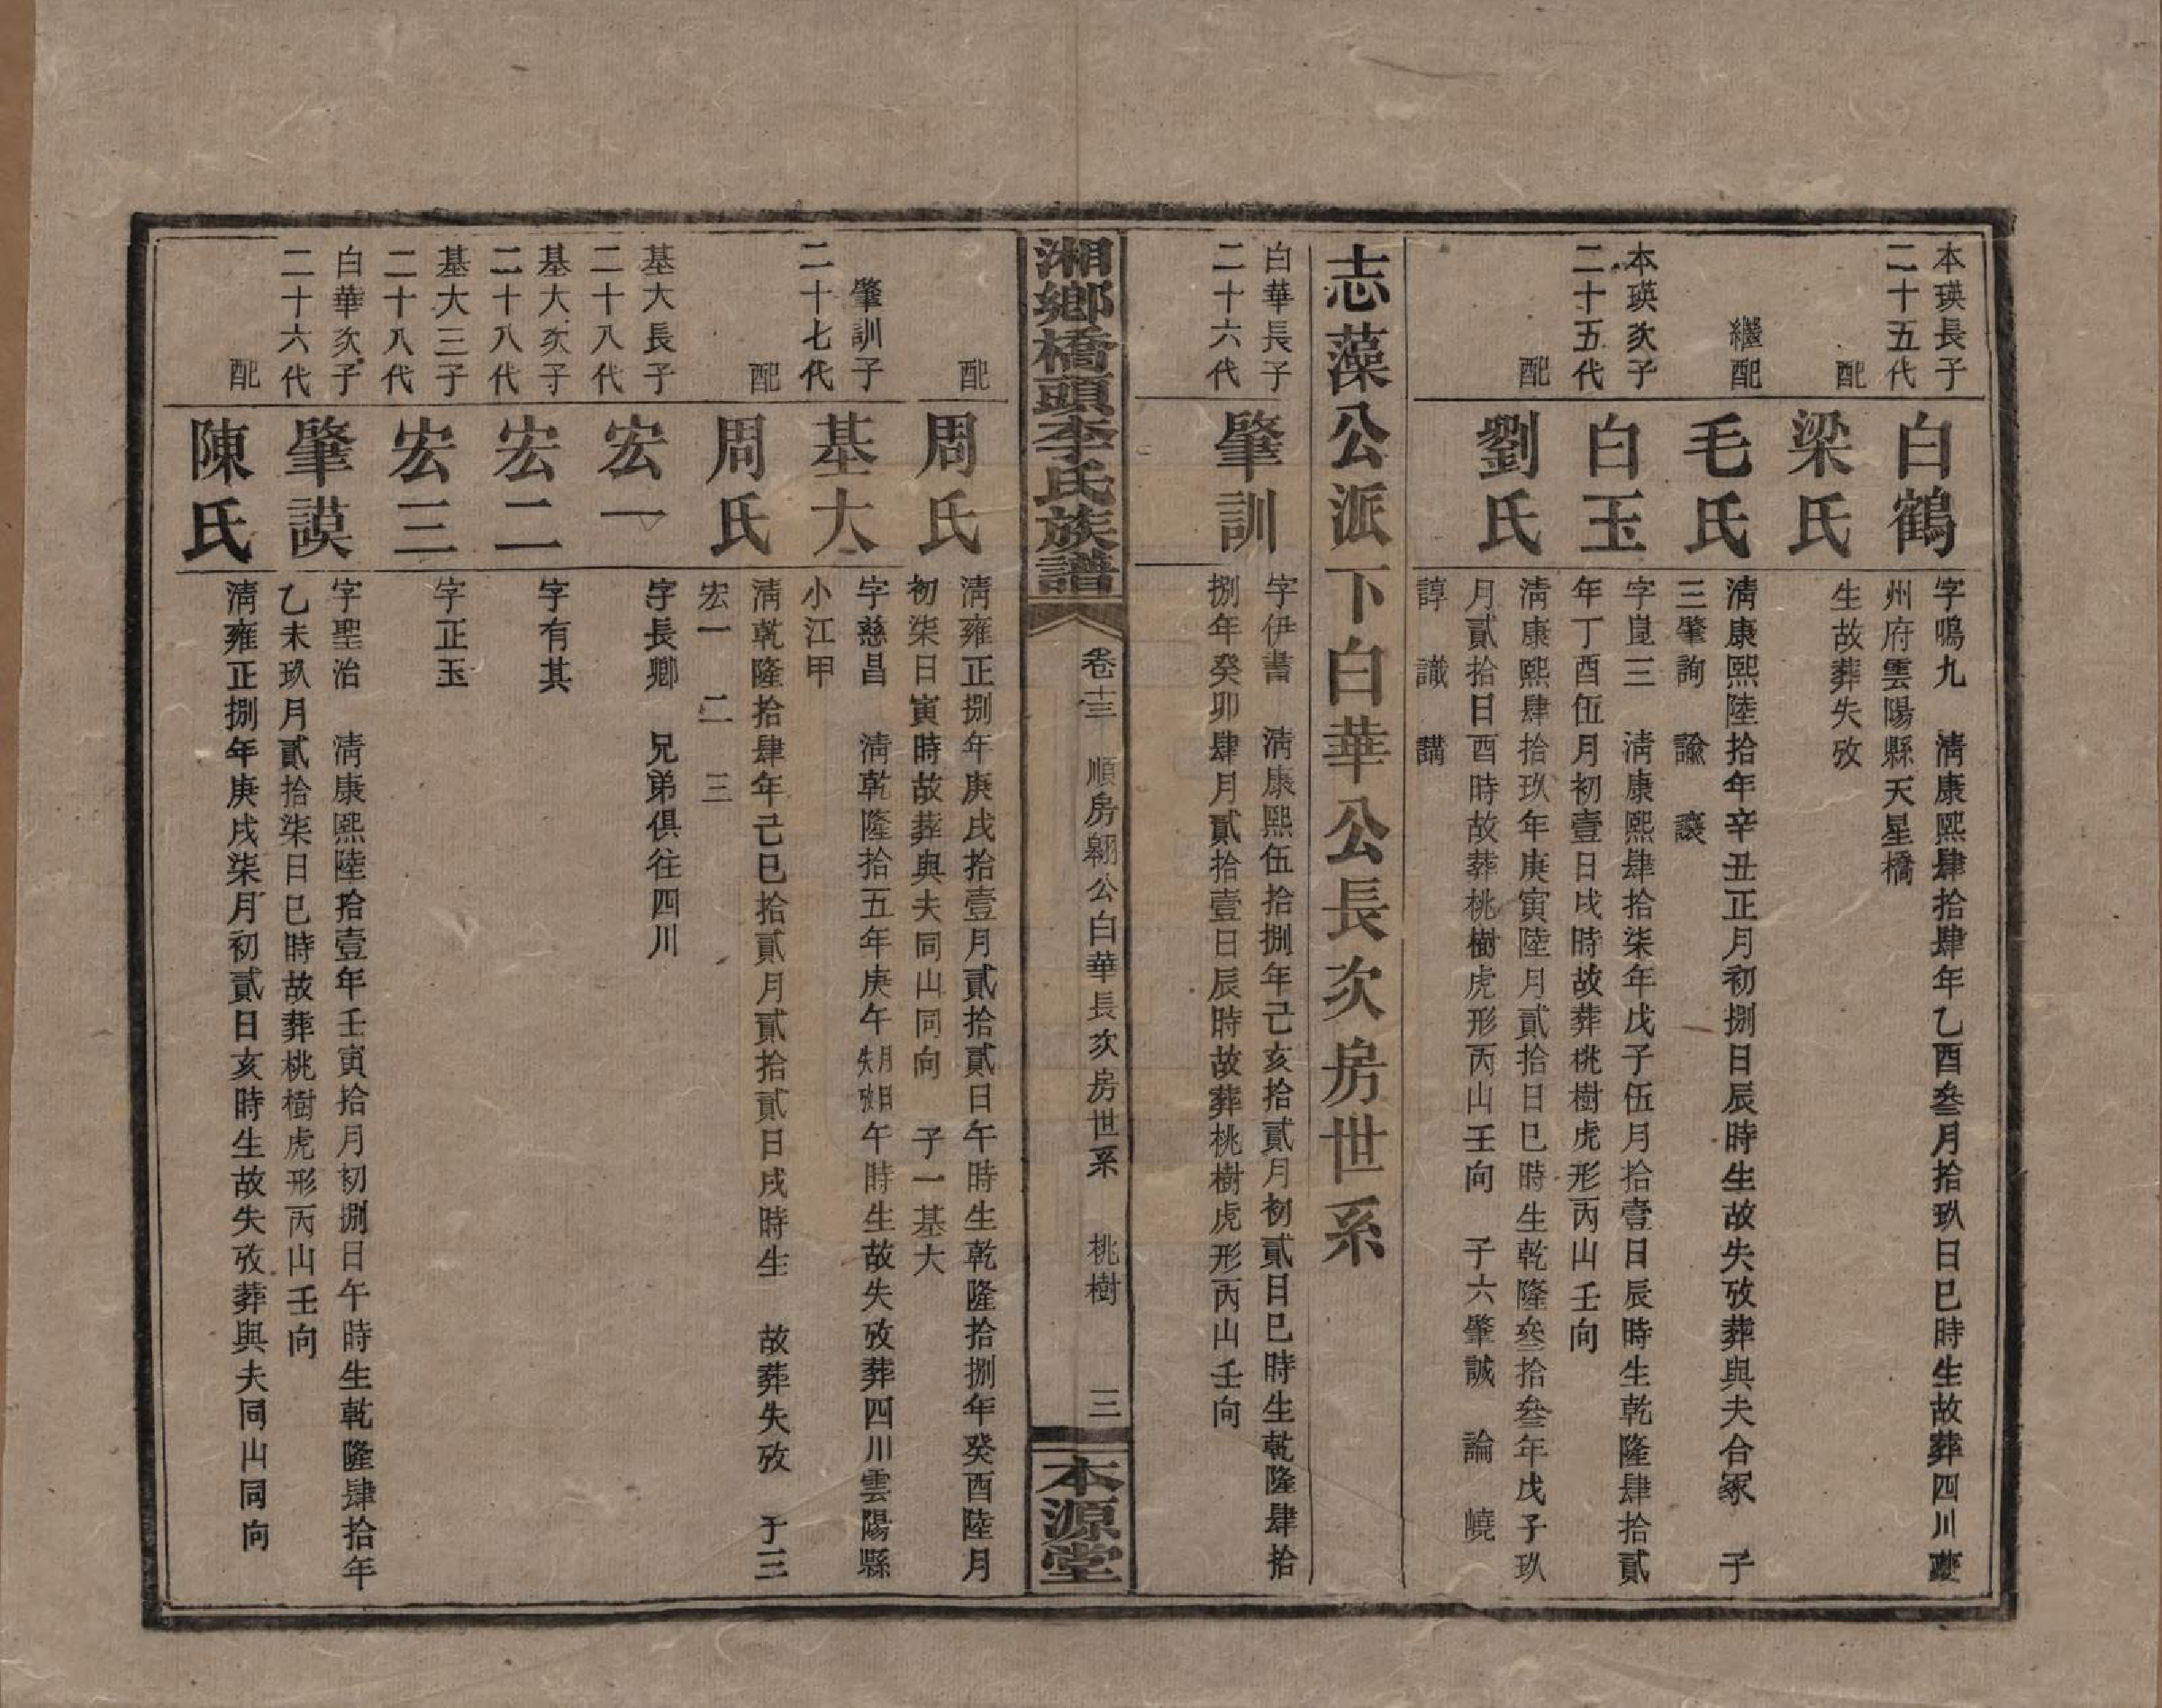 本瑛長子
二十五代
白鶴
字鳴九　清康熙肆拾肆年乙酉叁月拾玖日巳時生故葬四川夔
州府雲陽縣天星橋
配
梁氏
生故葬失攷
繼配
毛氏
清康熙陸拾年辛丑正月初捌日辰時生故失攷葬與夫合冢　子
三肇詢　諭　讓
本瑛次子
二十五代
白玉
字崑三　清康熙肆拾柒年戊子伍月拾壹日辰時生乾隆肆拾貳
年丁酉伍月初壹日戌時故葬桃樹虎形丙山壬向
配
劉氏
清康熙肆拾玖年庚寅陸月貳拾日巳時生乾隆叁拾叁年戊子玖
月貳拾日酉時故葬桃樹虎形丙山壬向　子六肇誠　論　曉
諄　識　講
志藻公派下白華公長次房世系
白華長子
二十六代
肇訓
字伊書　清康熙伍拾捌年己亥拾貳月初貳日巳時生乾隆肆拾
捌年癸卯肆月貳拾壹日辰時故葬桃樹虎形丙山壬向
湘鄉橋頭李氏族譜
卷十三　順房翱公白華長次房世系　桃樹　三
本源堂
配
周氏
清雍正捌年庚戌拾壹月貳拾貳日午時生乾隆拾捌年癸酉陸月
初柒日寅時故葬與夫同山同向　子一基大
肇訓子
二十七代
基大
字慈昌　清乾隆拾五年庚午月日失攷午時生故失攷葬四川雲陽縣
小江甲
配
周氏
清乾隆拾肆年己巳拾貳月貳拾貳日戌時生　故葬失攷　子三
宏一　二　三
基大長子
二十八代
宏一
字長卿　兄弟俱往四川
基大次子
二十八代
宏二
字有其
基大三子
二十八代
宏三
字正玉
白華次子
二十六代
肇謨
字聖治　清康熙陸拾壹年壬寅拾月初捌日午時生乾隆肆拾年
乙未玖月貳拾柒日巳時故葬桃樹虎形丙山壬向
配
陳氏
清雍正捌年庚戌柒月初貳日亥時生故失攷葬與夫同山同向